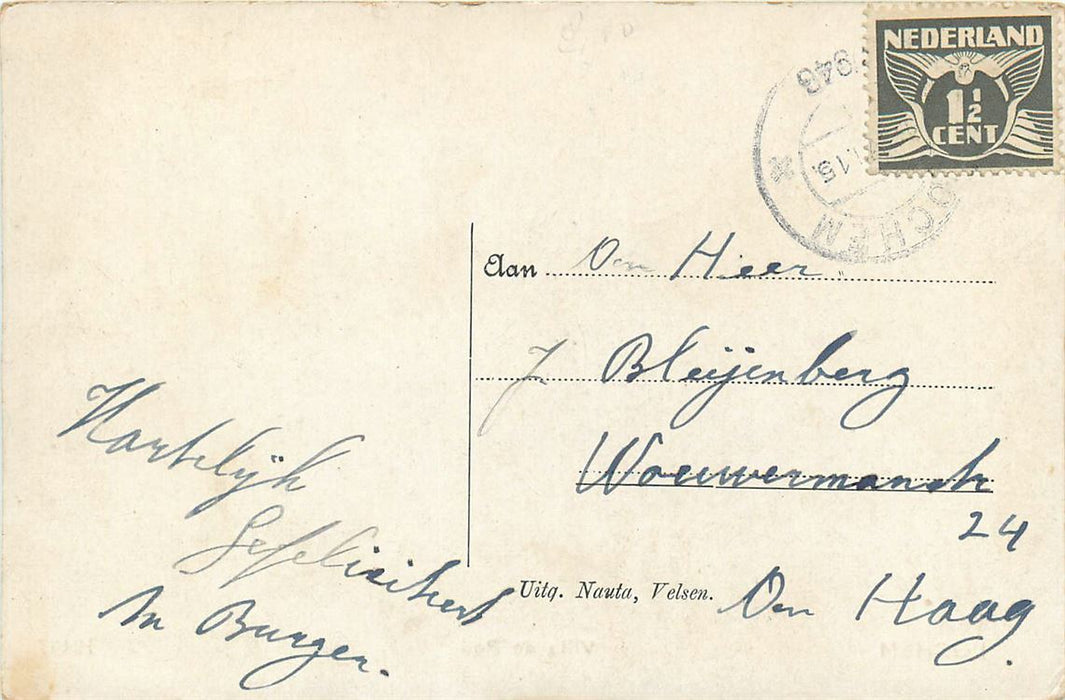 NEDERLAND
1 1/2
CENT
1946
15
OCHEM
Aan Den Heer
J. Bleijenberg
Wouwermanstr
24
Uitg. Nauta, Velsen.
Den Haag.
Hartelijk
Gefeliciteerd
Burger.